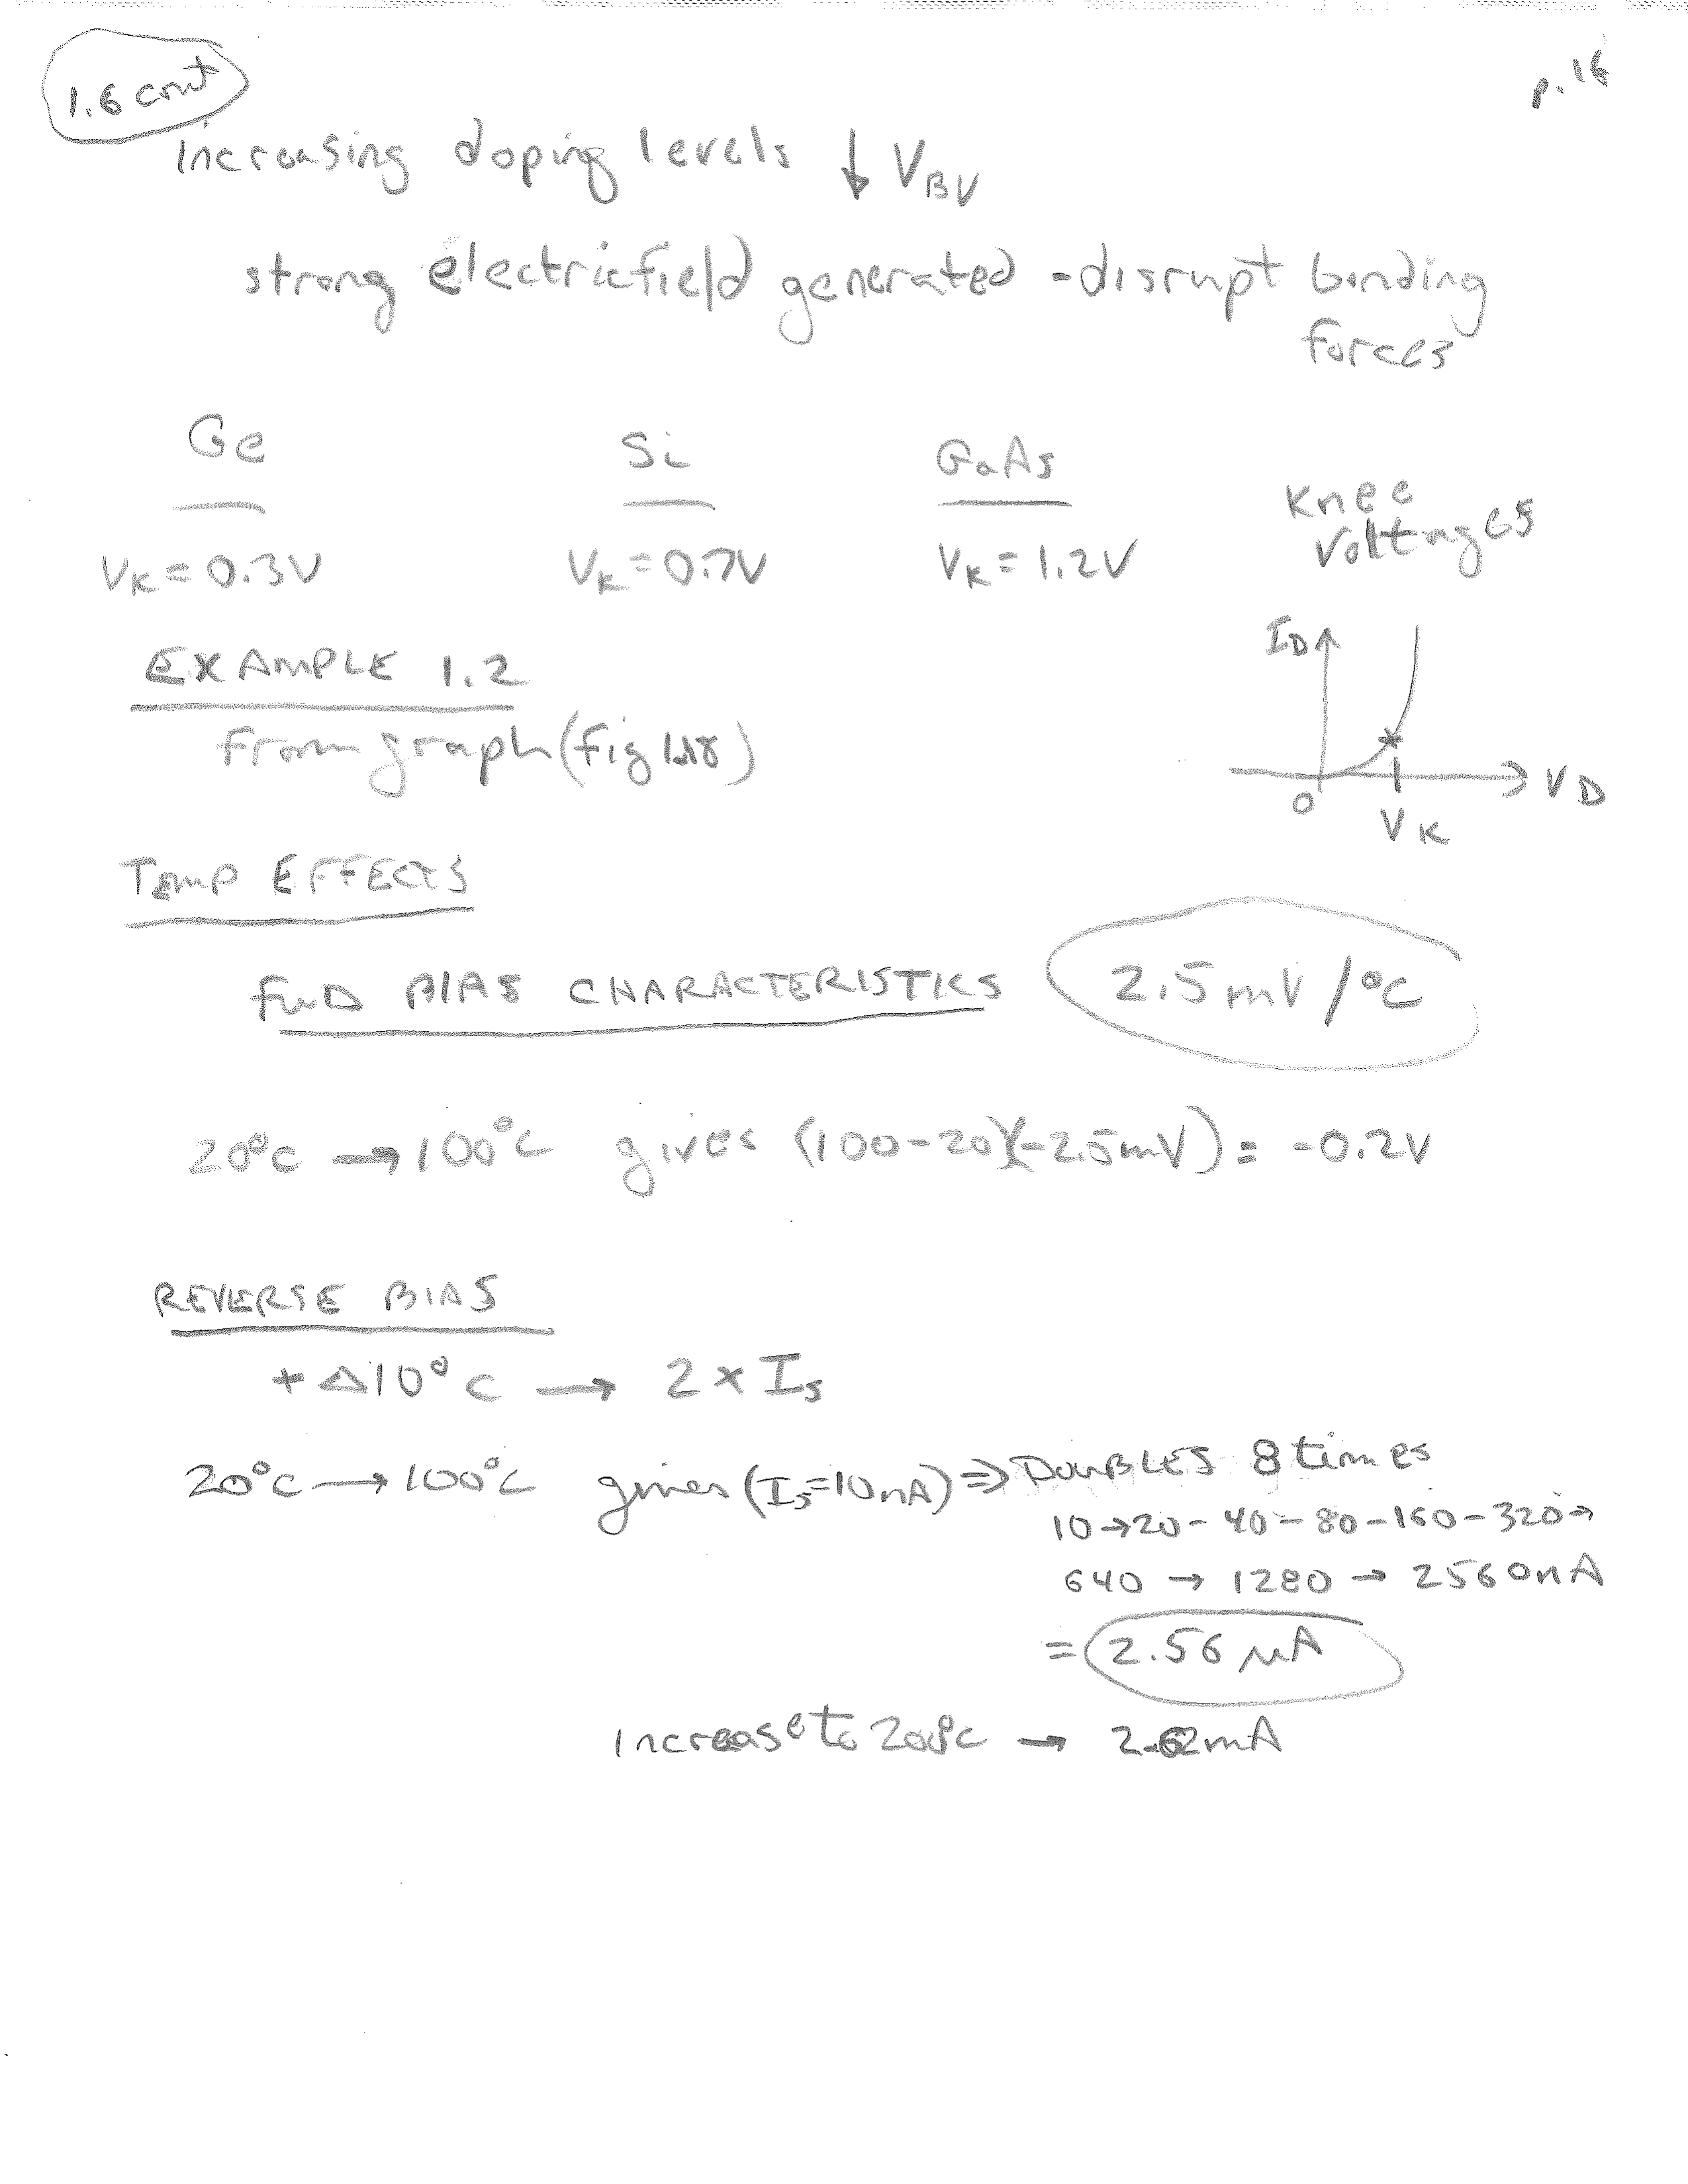 1.6 cont
p. 16
Increasing doping levels ↓ VBV
strong electric field generated - disrupt bonding
forces
Ge Si GaAs Knee
voltages
VK = 0.3V VK = 0.7V VK = 1.2V
ID
EXAMPLE 1.2
From graph (fig 1.18)
VD
0
VK
TEMP EFFECTS
FWD BIAS CHARACTERISTICS 2.5mV/°C
20°C → 100°C gives (100-20)(-2.5mV) = -0.2V
REVERSE BIAS
+ Δ10°C → 2 x Is
20°C → 100°C gives (Is=10nA) ⇒ DOUBLES 8 times
10→20-40-80-160-320→
640 → 1280 → 2560nA
= 2.56 µA
Increase to 200°C → 2.62mA